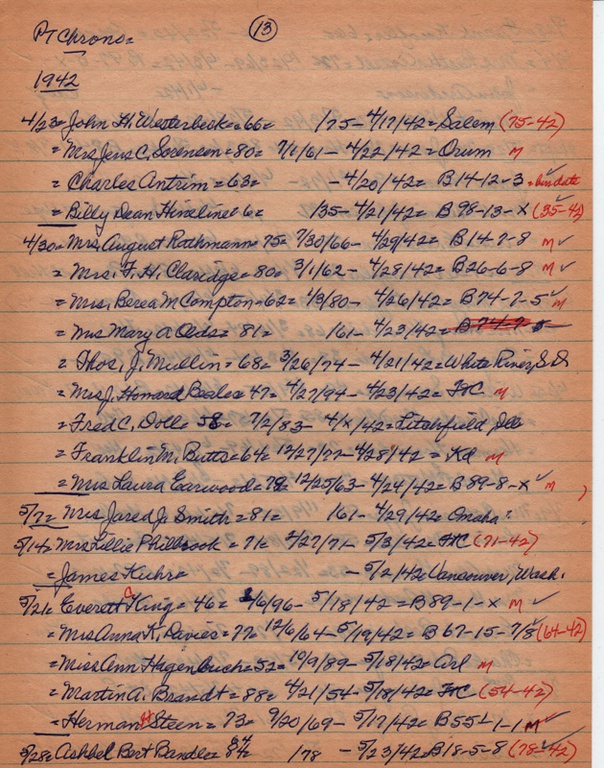 PT Chrono= (13)
1942
4/23= John H. Westerbeck= 66= 1/75- 4/17/42= Salem (75-42)
= Mrs Jens C. Sorensen= 80= 7/1/61- 4/22/42= Orum M
= Charles Antrim= 63= -4/20/42= B14-12-3 = bur date
= Billy Dean Hineline= 6= 1/35- 4/21/42= B98-13-X (35-42)
4/30= Mrs. August Rathmann= 75= 7/30/66- 4/29/42= B14-7-8 M ✓
= Mrs. F. H. Claridge= 80= 3/1/62- 4/28/42= B26-6-8 M ✓
= Mrs. Berea M Compton= 62= 1/3/80- 4/26/42= B74-7-5 ✓ M
= Mrs Mary A Olds= 81= 161- 4/23/42= B74-7-5
= Thos. J. Mullin= 68= 3/26/74- 4/21/42= White River, S.D
= Mrs J. Howard Beales= 47= 4/27/94- 4/23/42= FC M
= Fred C. Doll= 58= 7/2/83- 4/x/42= Litchfield, Ill
= Franklin M. Butts= 64= 12/27/77- 4/28/42= Kd M
= Mrs Laura Earwood= 78= 12/25/63- 4/24/42= B89-8-X ✓ M
5/7= Mrs Jared J. Smith= 81= 161- 4/29/42= Omaha
5/14= Mrs Lillie Philbrook= 71= 2/27/71- 5/3/42= FC (71-42)
= James Kuhr= - 5/2/42 Vancouver, Wash.
5/21= Everett A King= 46= 3/6/96- 5/18/42= B89-1-X M ✓
= Mrs Anna K. Davies= 77= 12/6/64- 5/19/42= B67-15-7/8 (64-42)
= Miss Ann Hagenbuch= 52= 10/9/89- 5/18/42= Arl M
= Martin A. Brandt= 88= 4/21/54- 5/18/42= FC (54-42)
= Herman H Steen= 73= 9/20/69- 5/17/42= B55-1-1 M ✓
5/28= Ashbel Bert Bandle= 84= 1/78 - 5/23/42= B18-5-8 (78-42)